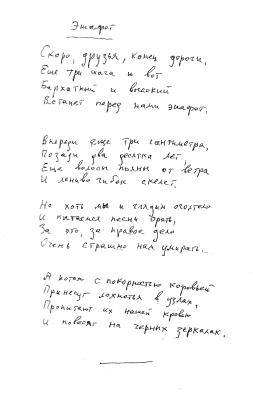 Эшафот
Скоро, друзья, конец дороги,
Еще три шага и вот
Бархатный и высокий
Встанет перед нами эшафот.
Впереди еще три сантиметра,
Позади два десятка лет,
Еще волосы пьяны от ветра
И лениво гибок скелет.
Но хоть мы и глядим оголтело
И пытаемся песни орать,
За это, за правое дело
Очень страшно нам умирать...
А потом с покорностью коровьей
Принесут лохмотья в узлах,
Пропитают их нашей кровью
И повесят на черных зеркалах.